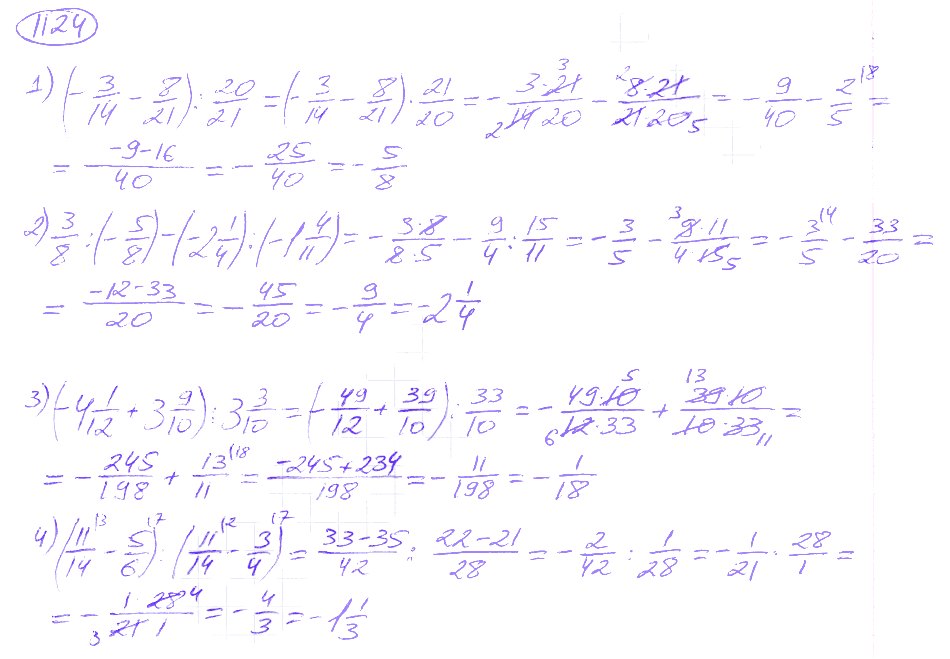 1124
1) (-3/14 - 8/21) : 20/21 = (-3/14 - 8/21) · 21/20 = - 3·21/14·20 - 8·21/21·20 = - 9/40 - 2/5 =
= -9-16/40 = - 25/40 = - 5/8
2) 3/8 : (-5/8) - (-2 1/4) : (-1 4/11) = - 3·8/8·5 - 9/4 : 15/11 = - 3/5 - 9·11/4·15 = - 3/5 - 33/20 =
= -12-33/20 = - 45/20 = - 9/4 = -2 1/4
3) (-4 1/12 + 3 9/10) : 3 3/10 = (-49/12 + 39/10) : 33/10 = - 49·10/12·33 + 39·10/10·33 =
= - 245/198 + 13/11 = -245+234/198 = - 11/198 = - 1/18
4) (11/14 - 5/6) : (11/14 - 3/4) = 33-35/42 : 22-21/28 = - 2/42 : 1/28 = - 1/21 · 28/1 =
= - 1·28/21·1 = - 4/3 = -1 1/3